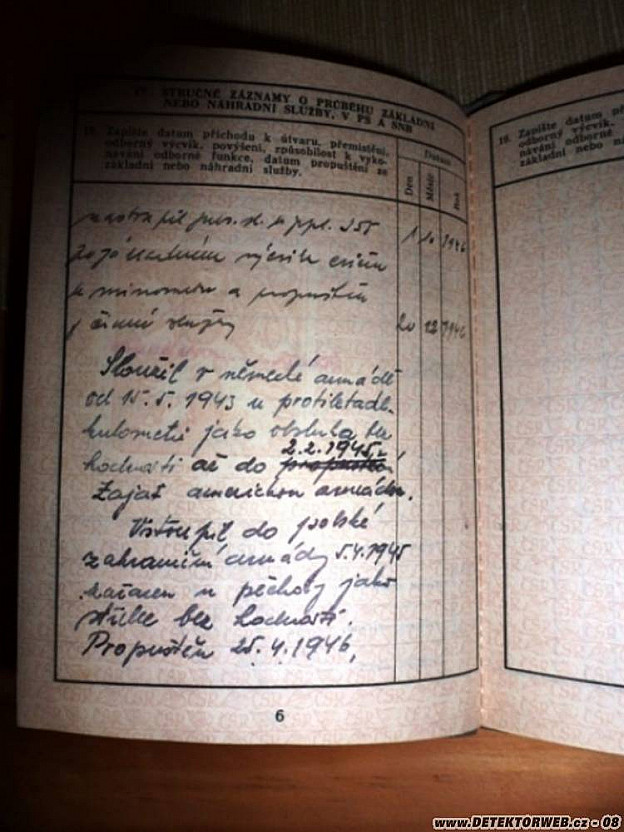 17. STRUČNÉ ZÁZNAMY O PRŮBĚHU ZÁKLADNÍ
NEBO NÁHRADNÍ SLUŽBY, V PS A SNB
18. Zapište datum příchodu k útvaru, přemístění,
odborný výcvik, povýšení, způsobilost k výko-
návání odborné funkce, datum propuštění ze
základní nebo náhradní služby.
Datum
Den
Měsíc
Rok
nastoupil pres. sl. u
1 10 1946
výcvik
u minometu a propuštěn
z činné služby
20 12 1946
Sloužil v německé armádě
od 15.5. 1943 u protiletadl.
kulometu jako obsluha bez
2.2.1945.
hodnosti až do propuštění
Zajat americkou armádou.
Vstoupil do polské
zahraniční armády 5.4.1945
zařazen u pěchoty jako
střelec bez hodnosti.
Propuštěn 25.4.1946.
6
18. Zapište datum
odborný výcvik,
návání odborné
základní nebo
www.DETEKTORWEB.cz - 08